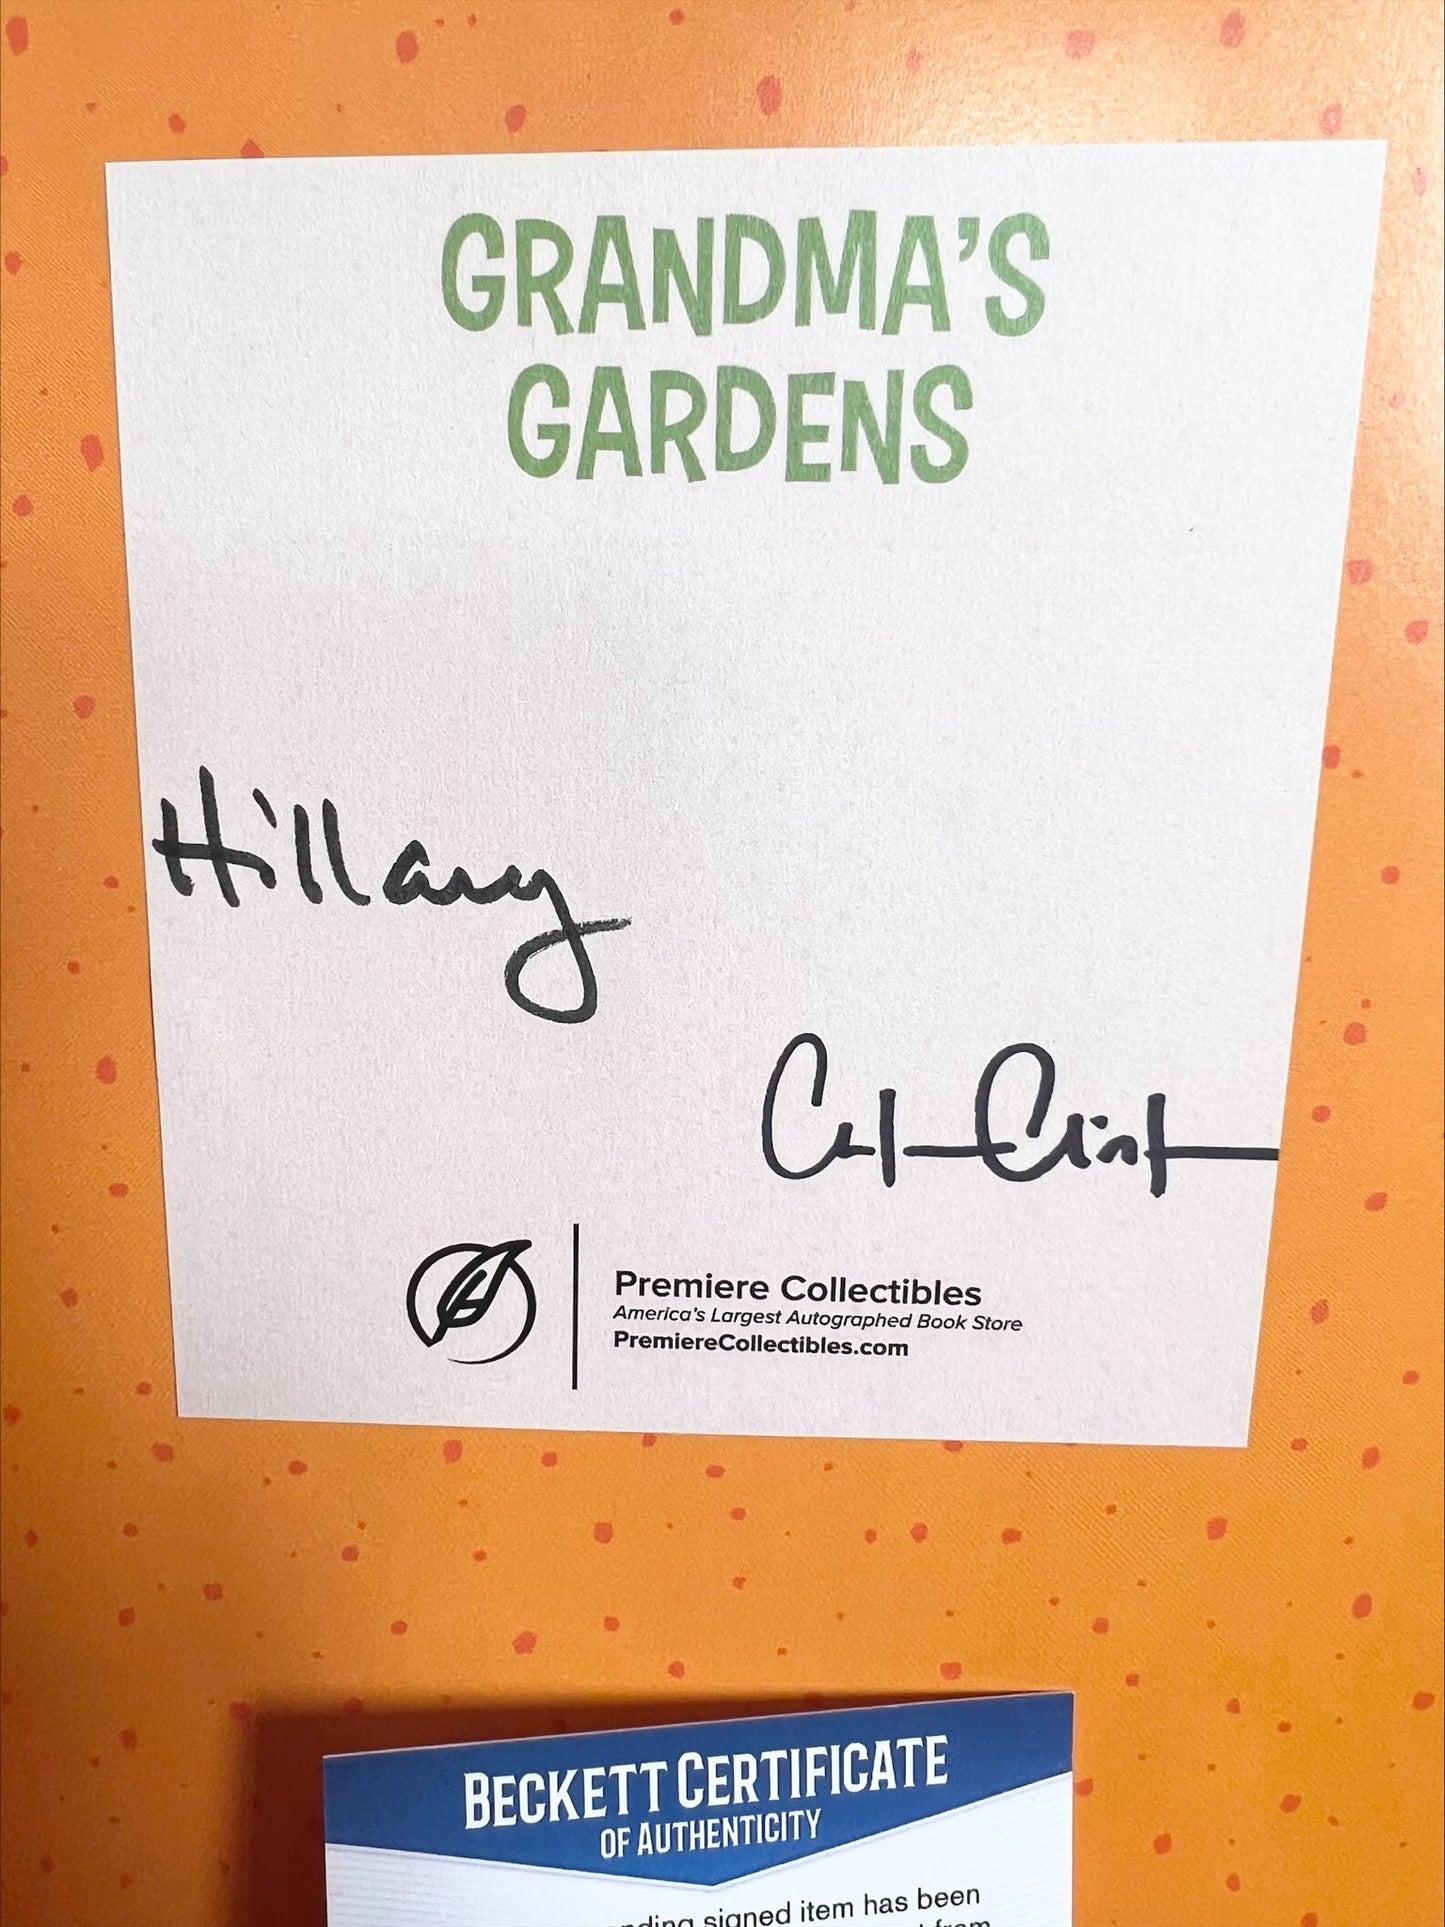 GRANDMA'S
GARDENS
Hillary
Premiere Collectibles
America's Largest Autographed Book Store
PremiereCollectibles.com
BECKETT CERTIFICATE
OF AUTHENTICITY
signed item has been
from